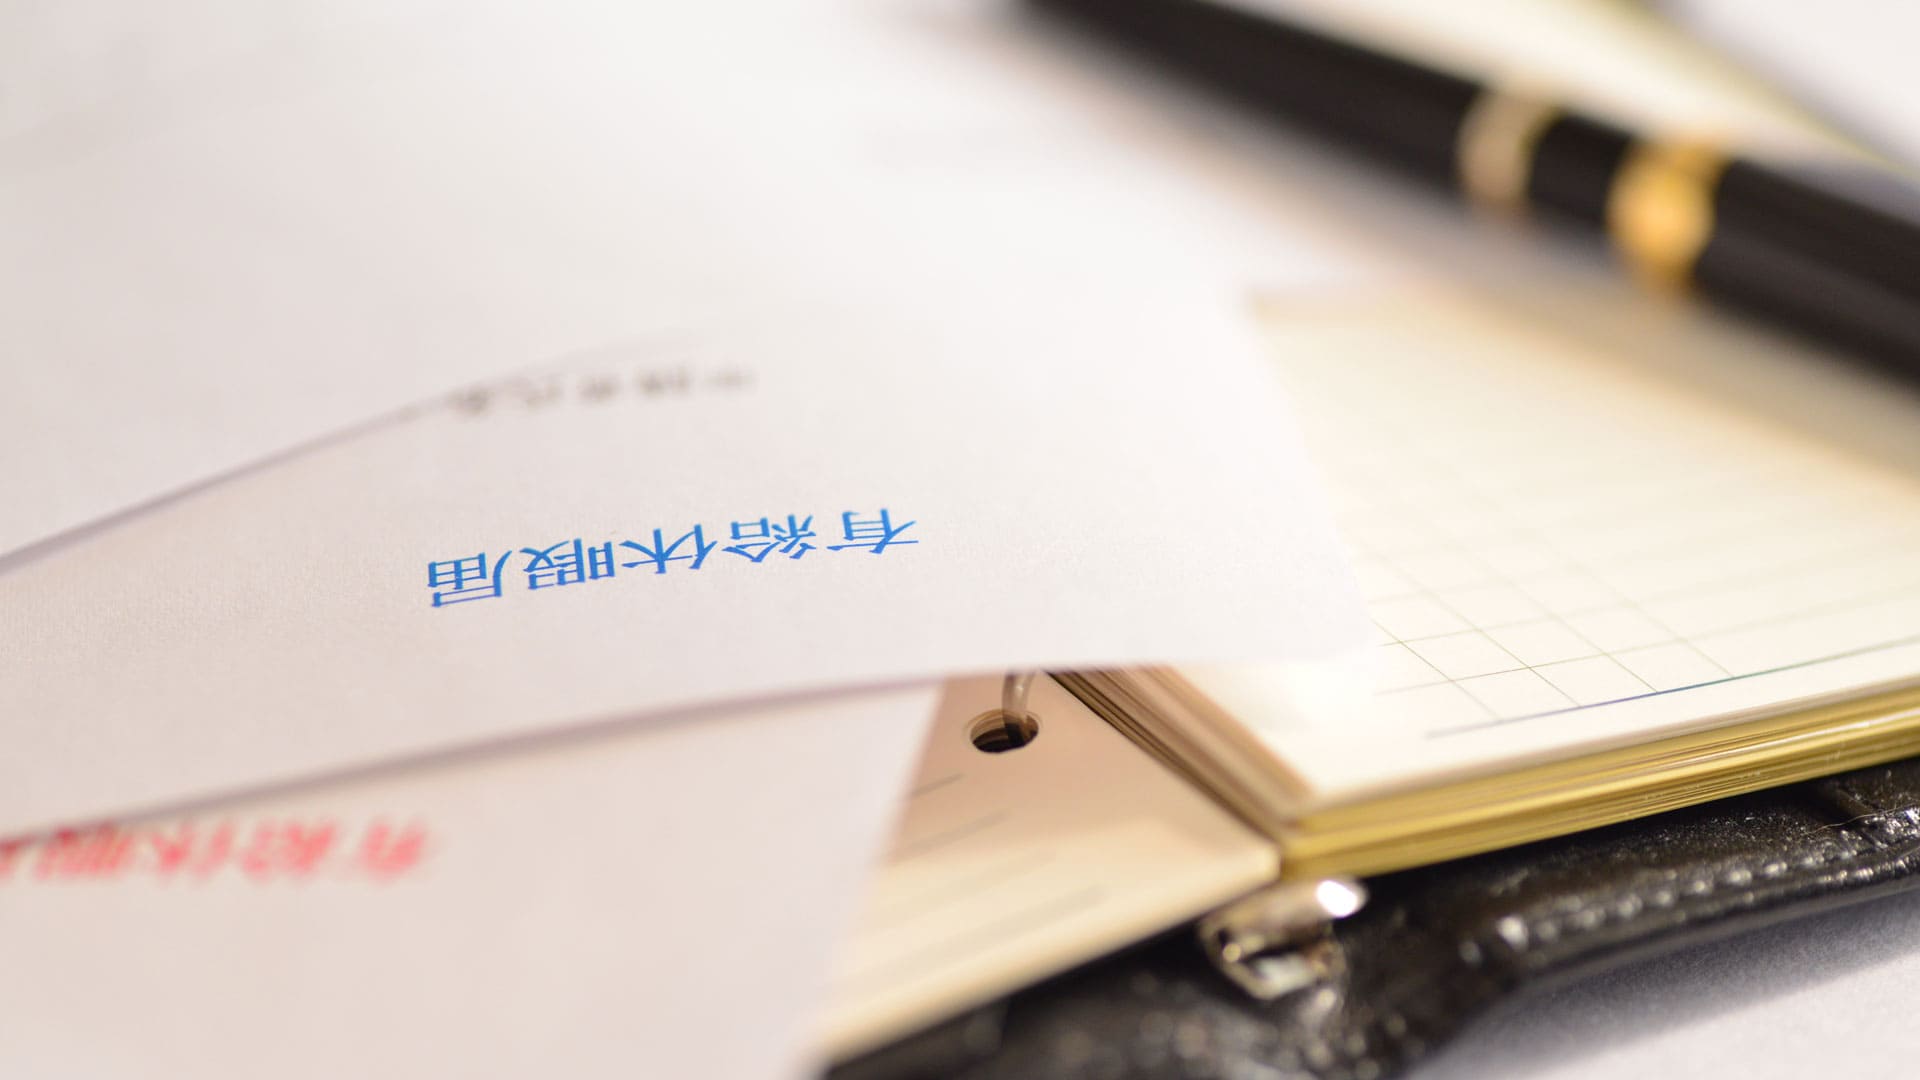 有給休暇届
有給休暇